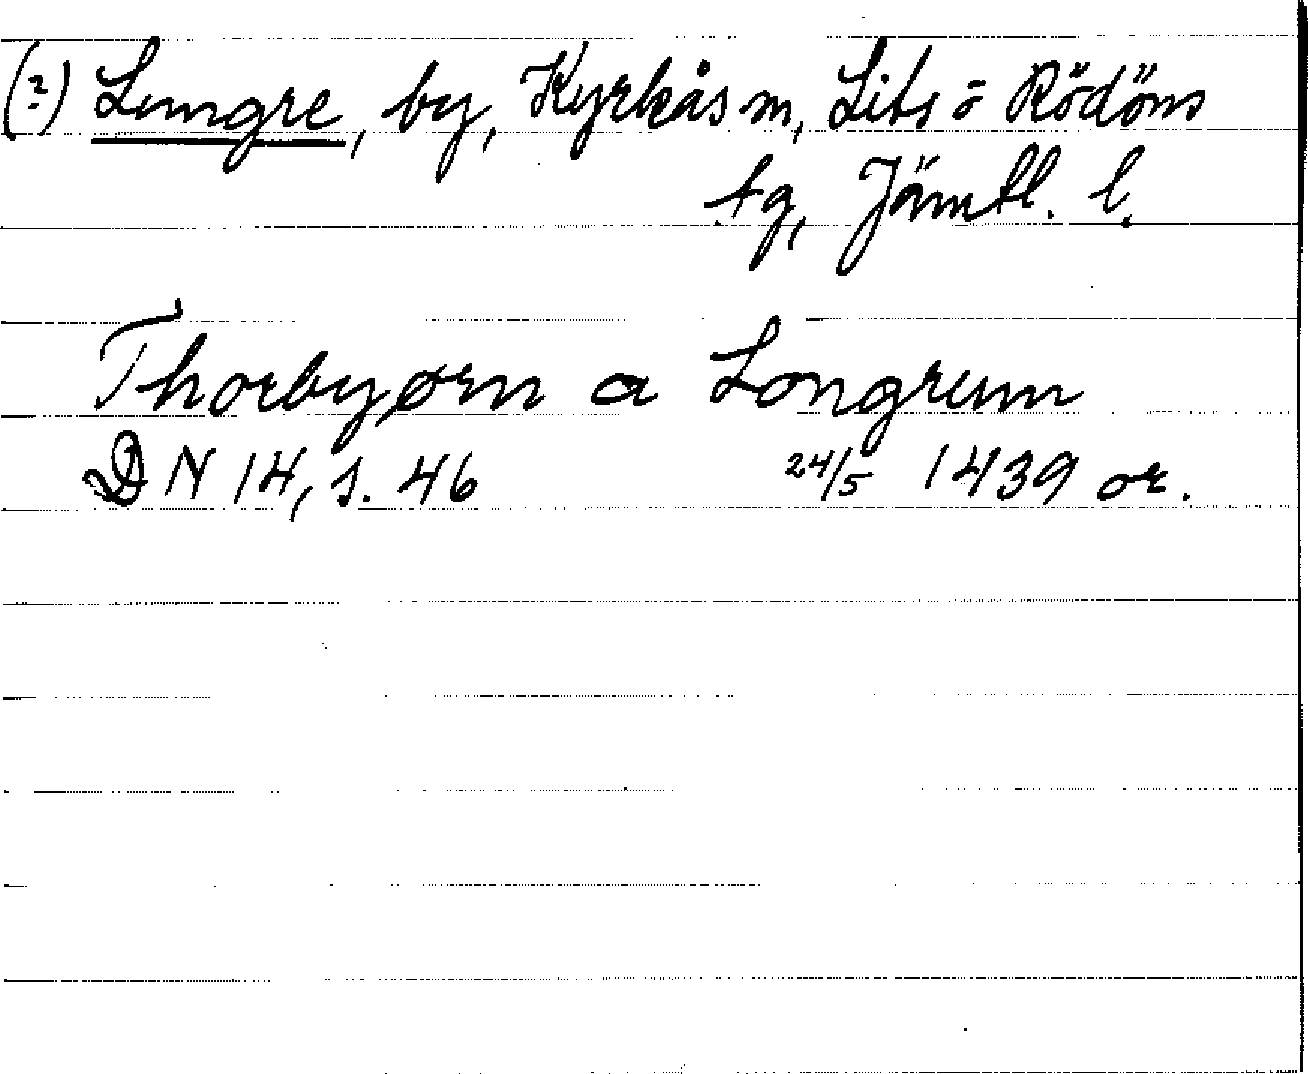 (?) Lungre, by, Kyrkås sn, Lits o Rödöns
tg, Jämtl. l.
Thorbyørn a Longrum
DN 14, s. 46 24/5 1439 or.